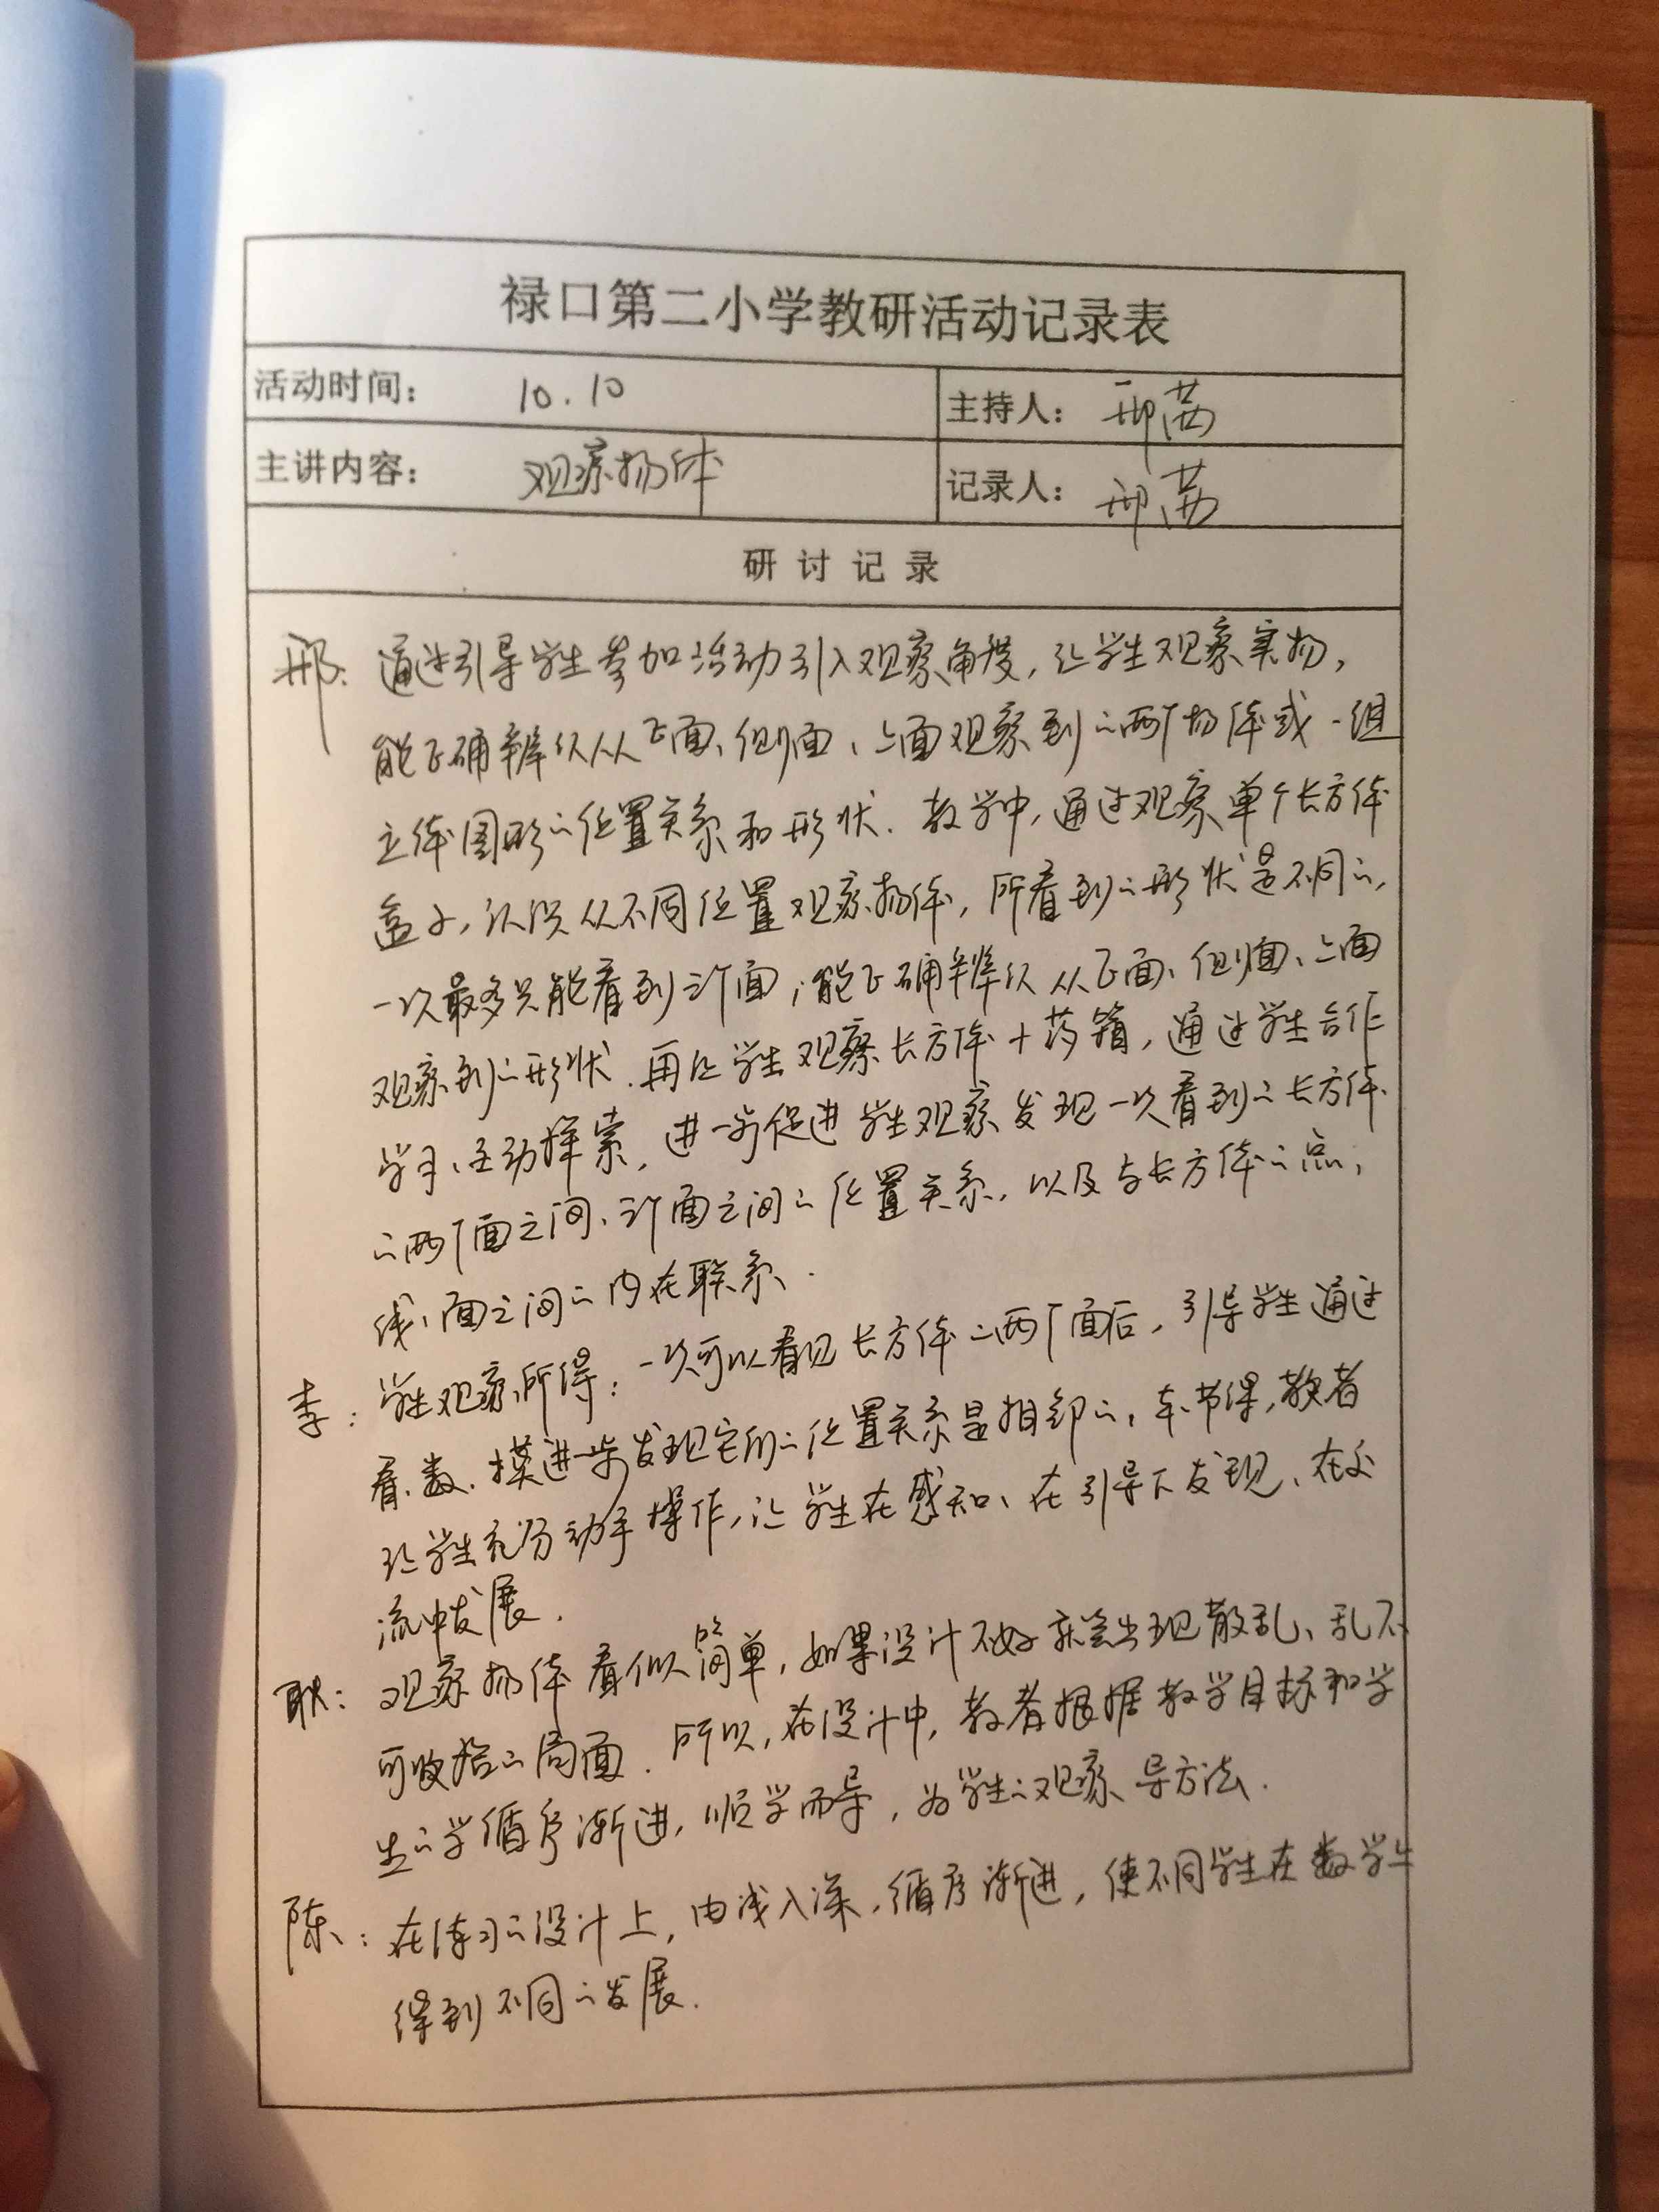 禄口第二小学教研活动记录表
活动时间: 10.10 主持人: 邢茜
主讲内容: 观察物体 记录人: 邢茜
研讨记录
邢: 通过引导学生参加活动引入观察角度,让学生观察实物,
能正确辨认从正面、侧面、上面观察到的两个物体或一组
立体图形的位置关系和形状. 教学中,通过观察单个长方体
盒子,认识从不同位置观察物体,所看到的形状是不同的,
一次最多只能看到三个面;能正确辨认从正面、侧面、上面
观察到的形状.再让学生观察长方体十药箱,通过学生合作
学习、主动探索,进一步促进学生观察发现一次看到的长方体
的两个面之间、三个面之间的位置关系,以及与长方体的点、
线、面之间的内在联系.
李: 学生观察所得:一次可以看见长方体的两个面后,引导学生通过
看、数、摸进一步发现它们的位置关系是相邻的,本节课,教者
让学生充分动手操作,让学生在感知、在引导下发现、在交
流中发展.
耿: 观察物体看似简单,如果设计不好就会出现散乱、乱不
可收拾的局面.所以,在设计中,教者根据教学目标和学
生的学循序渐进,顺学而导,为学生的观察导方法.
陈: 在练习的设计上,由浅入深,循序渐进,使不同学生在数学上
得到不同的发展.